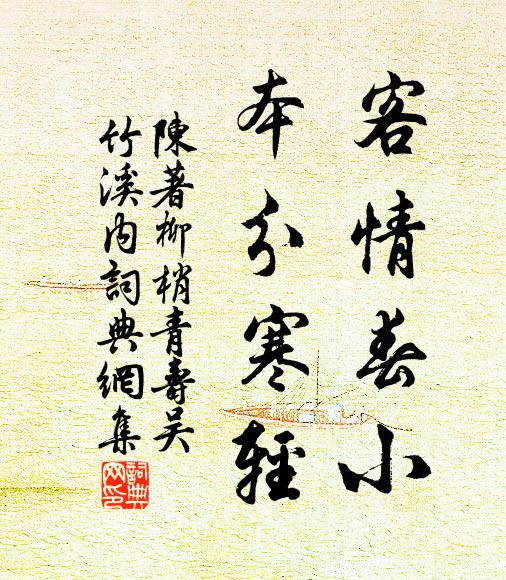 客情春小
本分寒輕
陳著柳梢青壽吴
竹溪内詞典網集
詞典網印